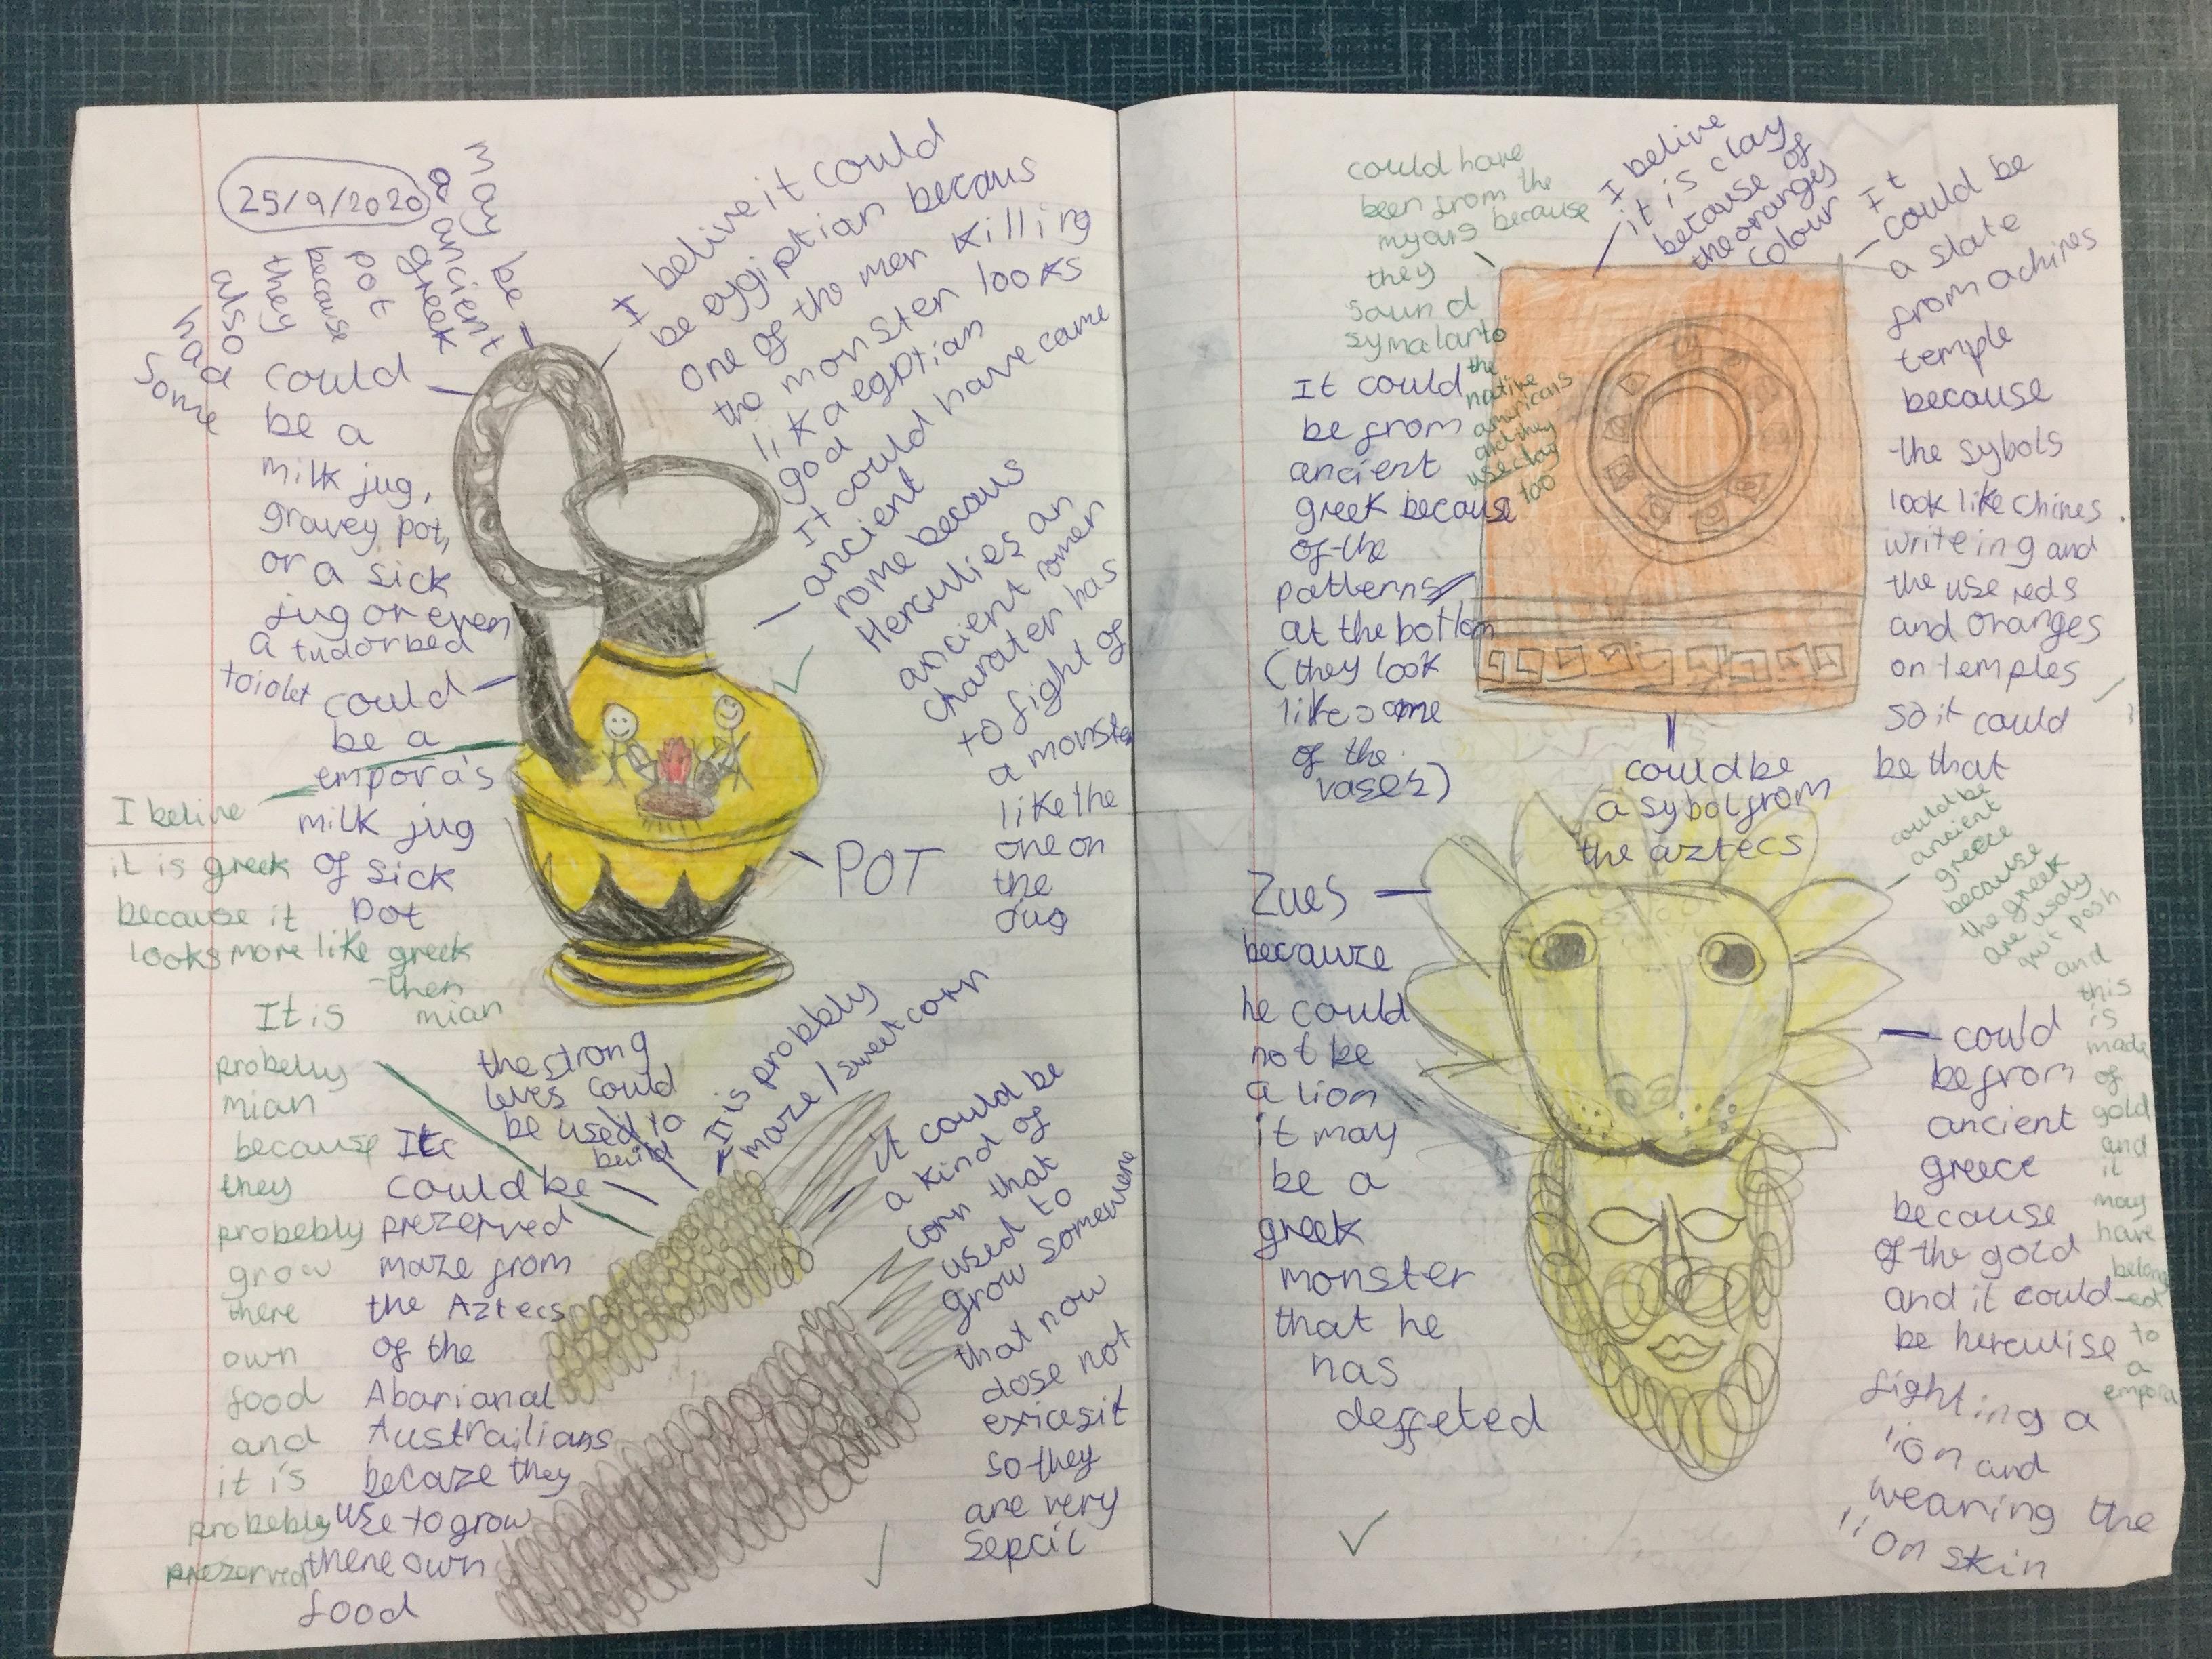 25/9/2020
may be
a ancient
greek
pot
because
they
also
had
some
could
be a
milk jug,
gravey pot,
or a sick
jug or even
a tudor bed
toiolet
could
be a
empora's
milk jug
of sick
pot
I beline
it is greek
because it
looks more like greek
then
mian
I belive it could
be eygiptian becaus
one of the men killing
the monster looks
lik a egptian
god
It could have came
ancient
rome becaus
Herculies an
ancient romen
charater has
to fight of
a monster
like the
one on
the
jug
POT
It is
probelly
mian
because
they
probebly
grow
there
own
food
and
it is
probebly
prezerved
the strong
leves could
be used to
build
It is probbly
maze / sweet corn
Itc
could be
prezerved
maze from
the Aztecs
of the
Abarianal
Austrailians
becaze they
use to grow
there own
food
it could be
a kind of
corn that
used to
grow somewere
that now
dose not
exicesit
so they
are very
sepcil
could have
been from the
myans because
they
sound
symalar to
the
native
americans
and they
use clay
too
I belive
it is clay
because of
the oranges
colour
It
could be
a slate
from a chines
temple
because
the sybols
look like chines
writeing and
the use reds
and oranges
on temples
so it could
be that
It could
be from
ancient
greek because
of the
patterns
at the bottom
(they look
like some
of the
vases)
could be
a sybol from
the aztecs
Zues
becauze
he could
not be
a lion
it may
be a
greek
monster
that he
has
deffeted
could be
ancient
greece
because
the greek
are usaly
quit posh
and
this
is
made
of
gold
and
it
may
have
belong
-ed
to
a
empora
could
be from
ancient
greece
because
of the gold
and it could
be herculise
fighting a
lion and
wearing the
lion skin